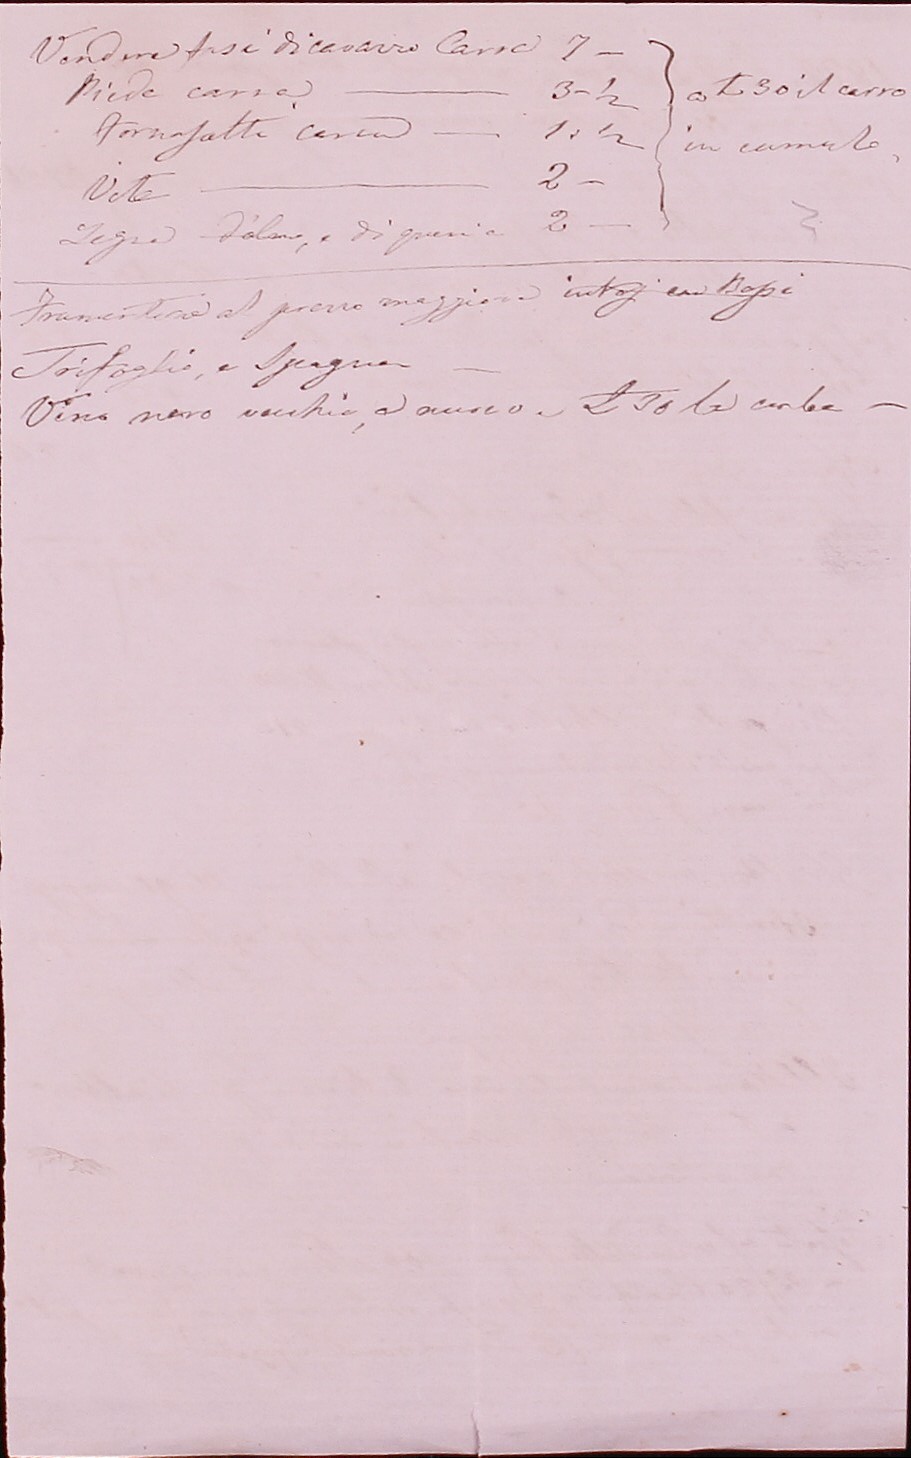 Vendere fassi di cavazzo Carra 7 —
Piede carra — 3-½
Fornasotti carra — 1.½
Vite — 2 -
Legna d'olmo, e di quercia 2 —
a £ 30 il carro
in cumulo,
Frumentone al prezzo maggiore
Trifoglio, e Spagna —
Vino nero vecchio, e nuovo a £ 30 la corba —